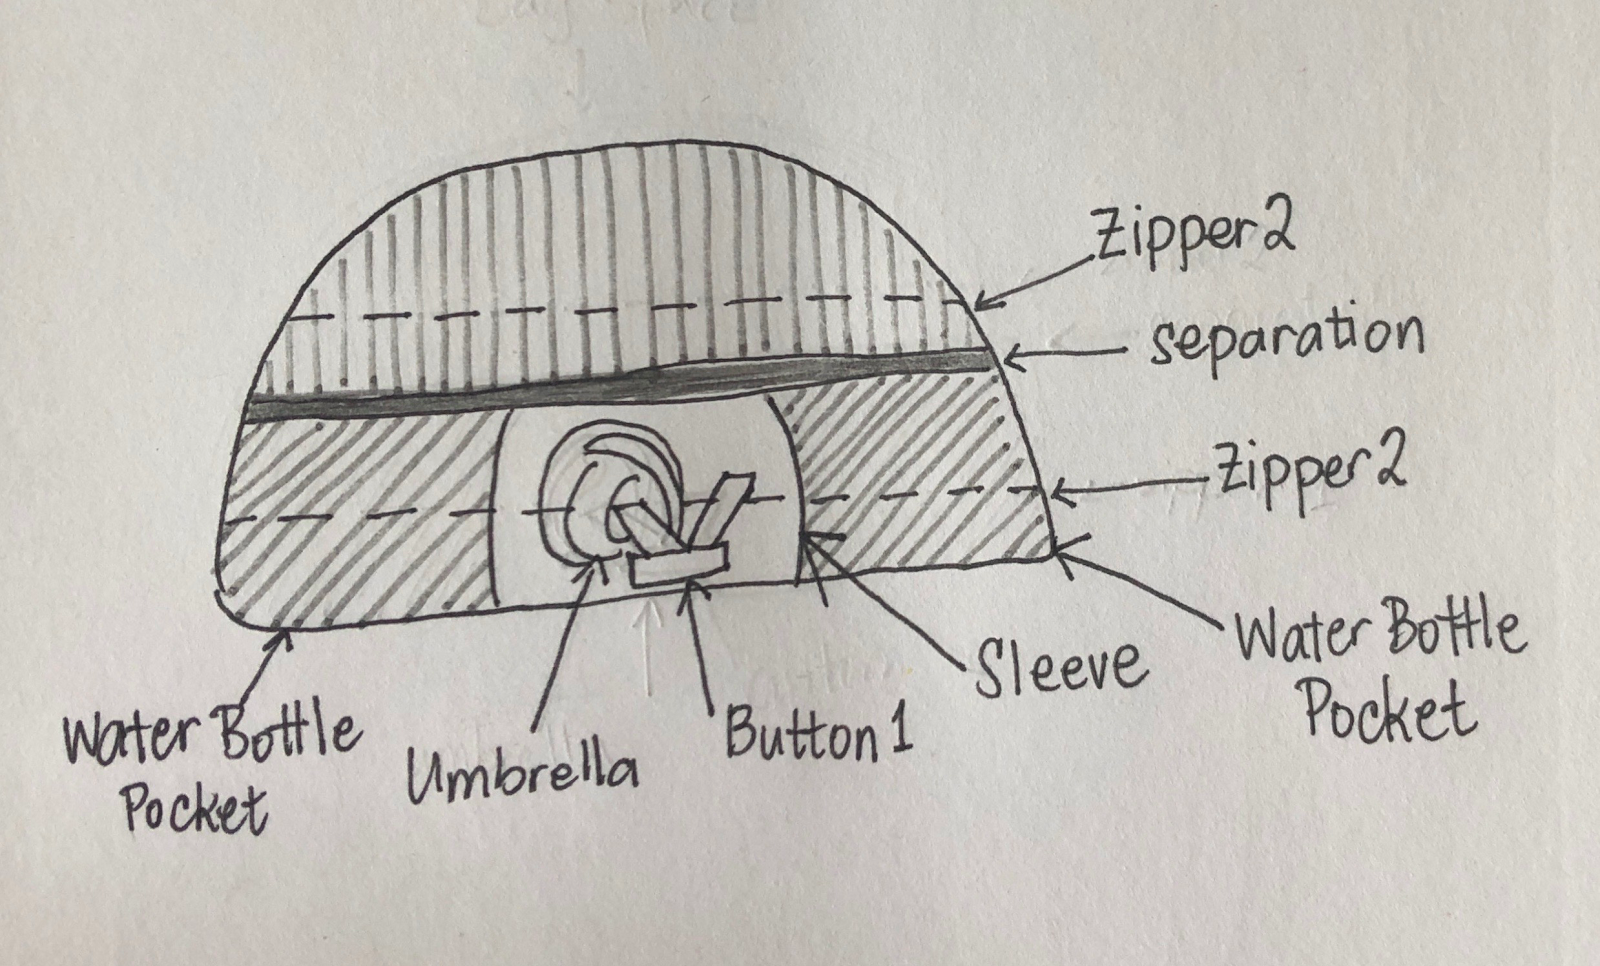 Zipper 2
separation
Zipper 2
Water Bottle
Pocket
Sleeve
Button 1
Umbrella
Water Bottle
Pocket